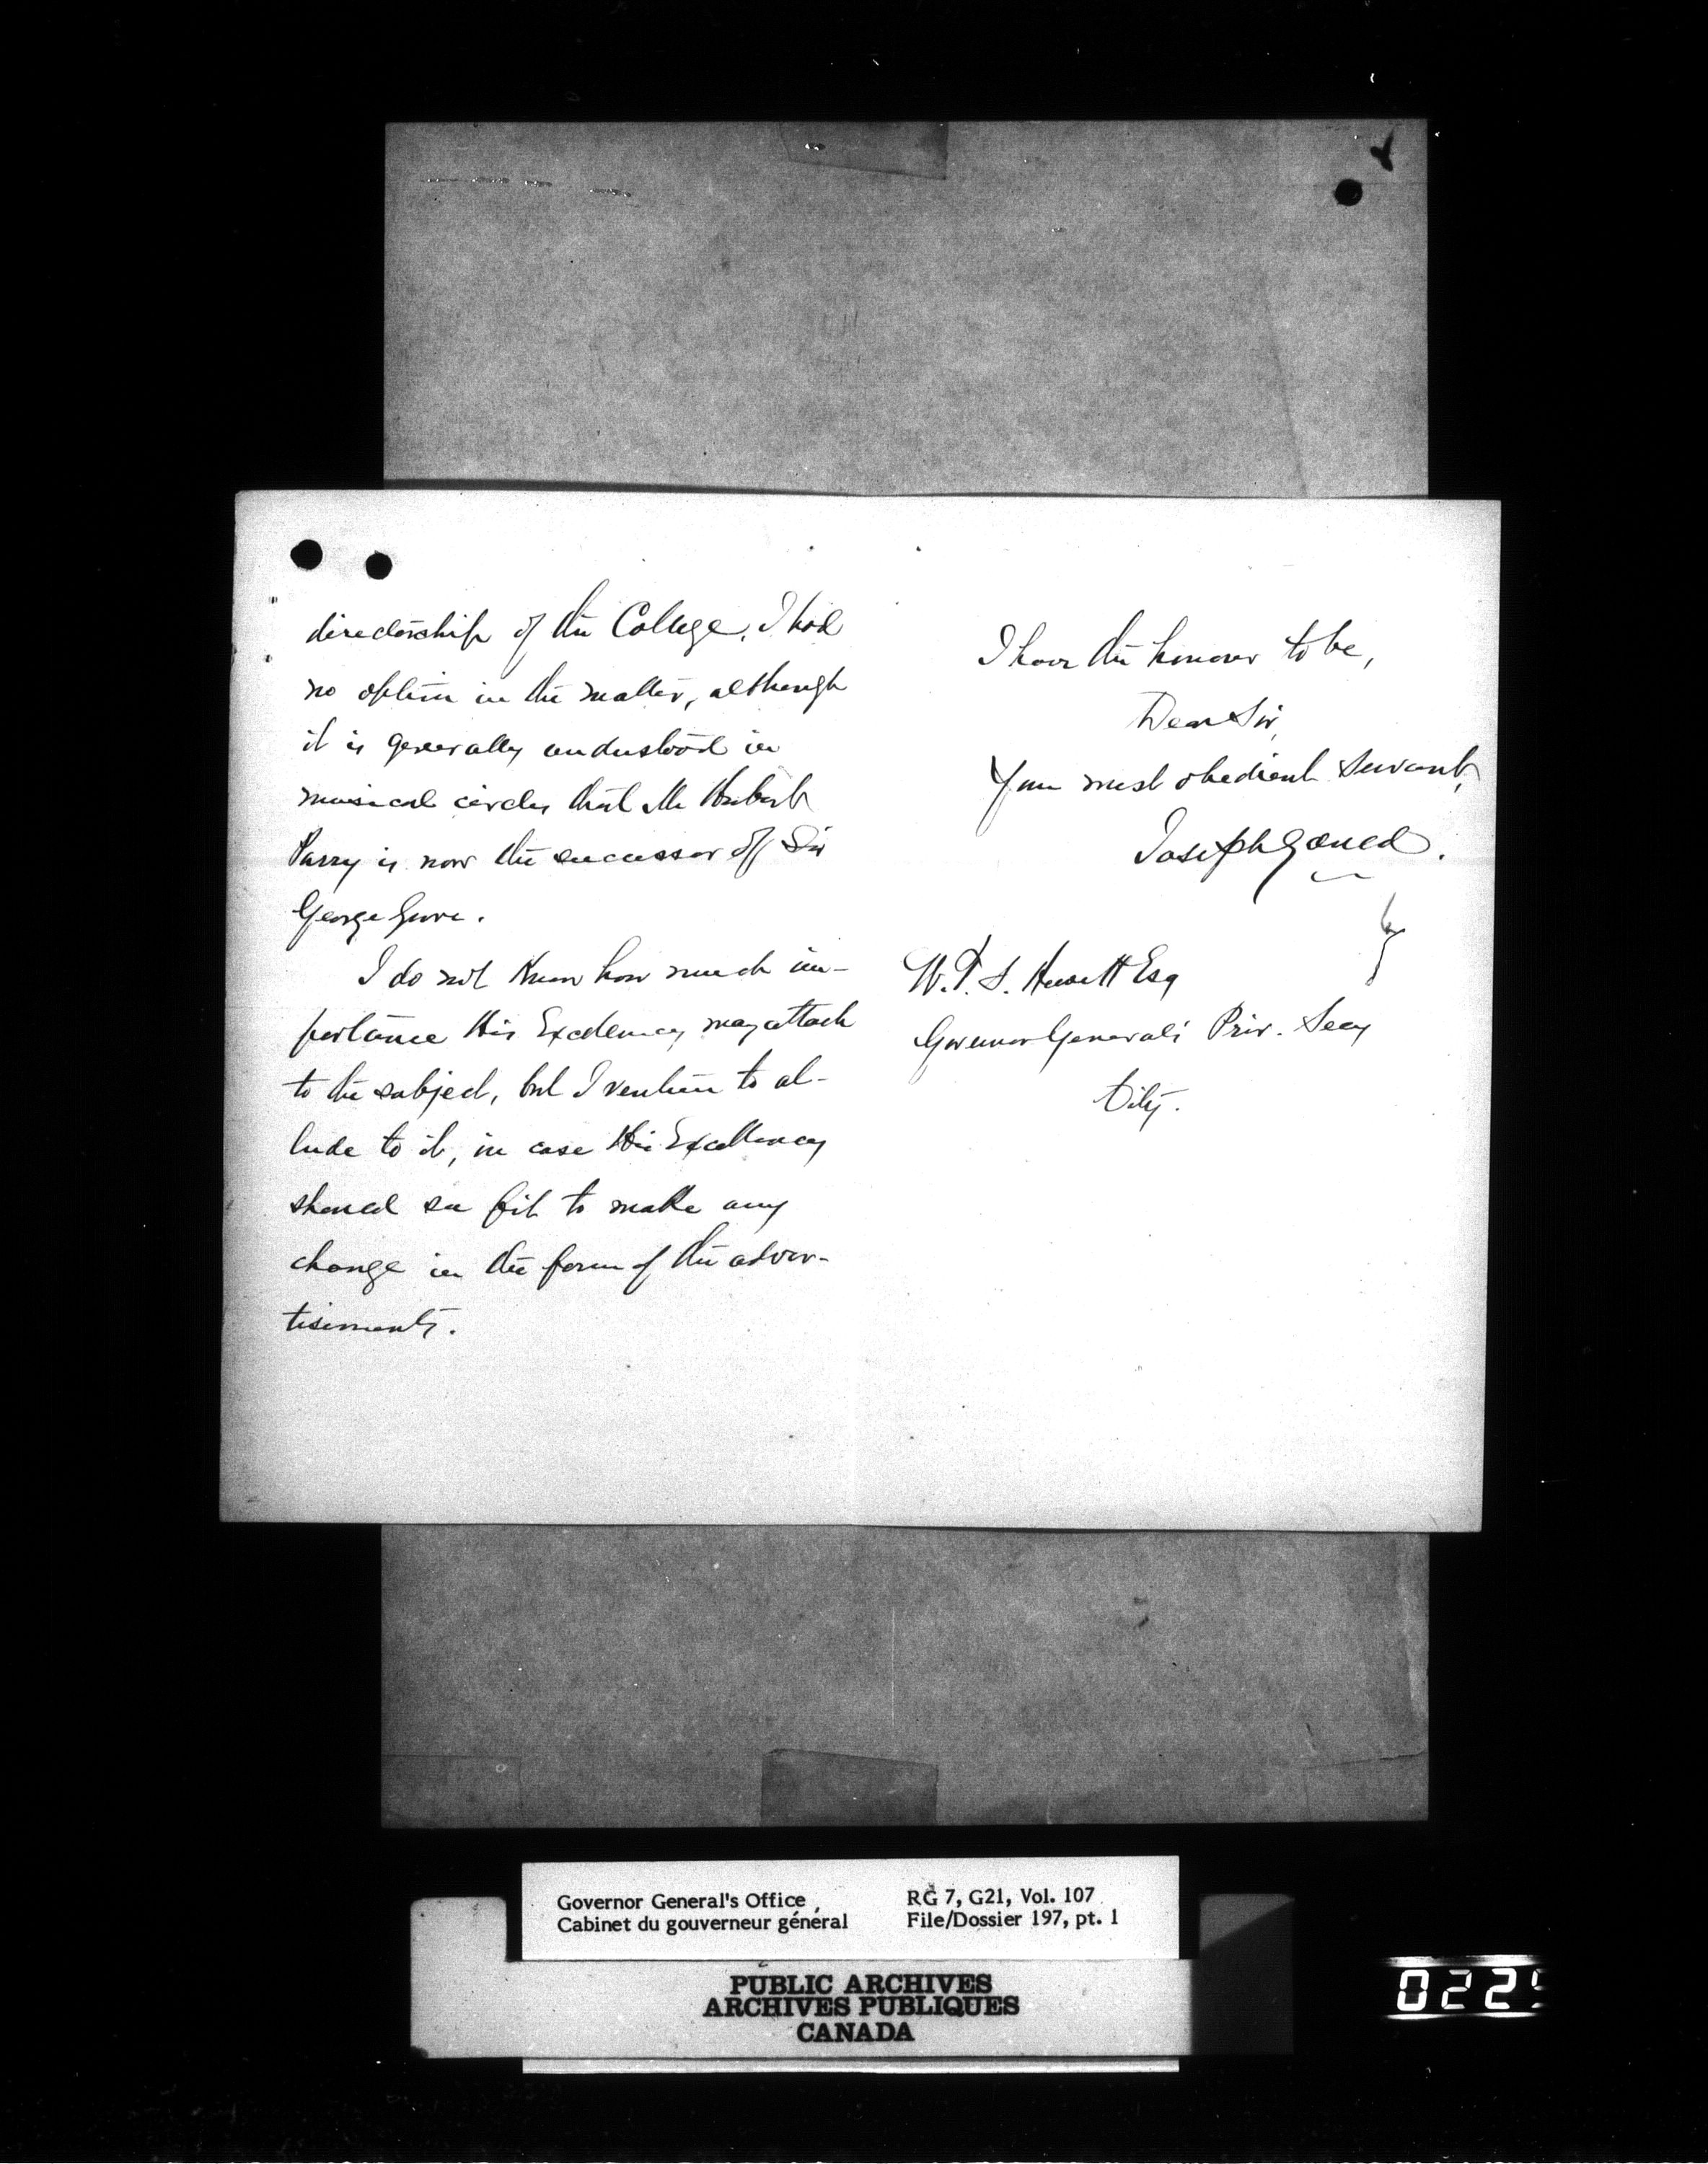 directorship of the College. I had
no option in the matter, although
it is generally understood in
musical circles that Mr Hubert
Parry is now the successor of Sir
George Grove.
I do not know how much im-
portance His Excellency may attach
to the subject, but I venture to al-
lude to it, in case His Excellency
should see fit to make any
change in the form of the adver-
tisements.
I have the honour to be,
Dear Sir,
Your most obedient Servant,
Joseph Gould.
W. T. S. Hewett Esq
Governor General's Priv. Secy
City.
Governor General's Office
Cabinet du gouverneur général
RG 7, G21, Vol. 107
File/Dossier 197, pt. 1
PUBLIC ARCHIVES
ARCHIVES PUBLIQUES
CANADA
022